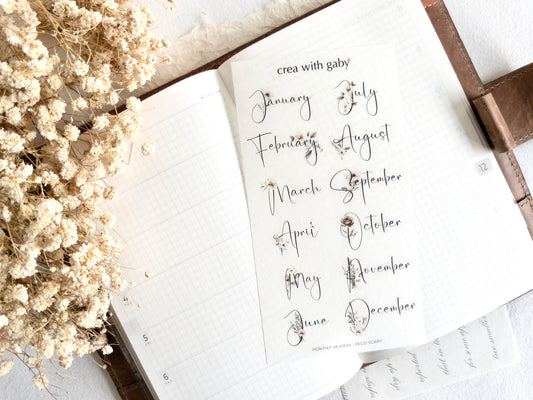 crea with gaby
January
July
February
August
March
September
April
October
May
November
June
December
MONTHLY HEADERS - DECO SCRIPT
12
4
5
6